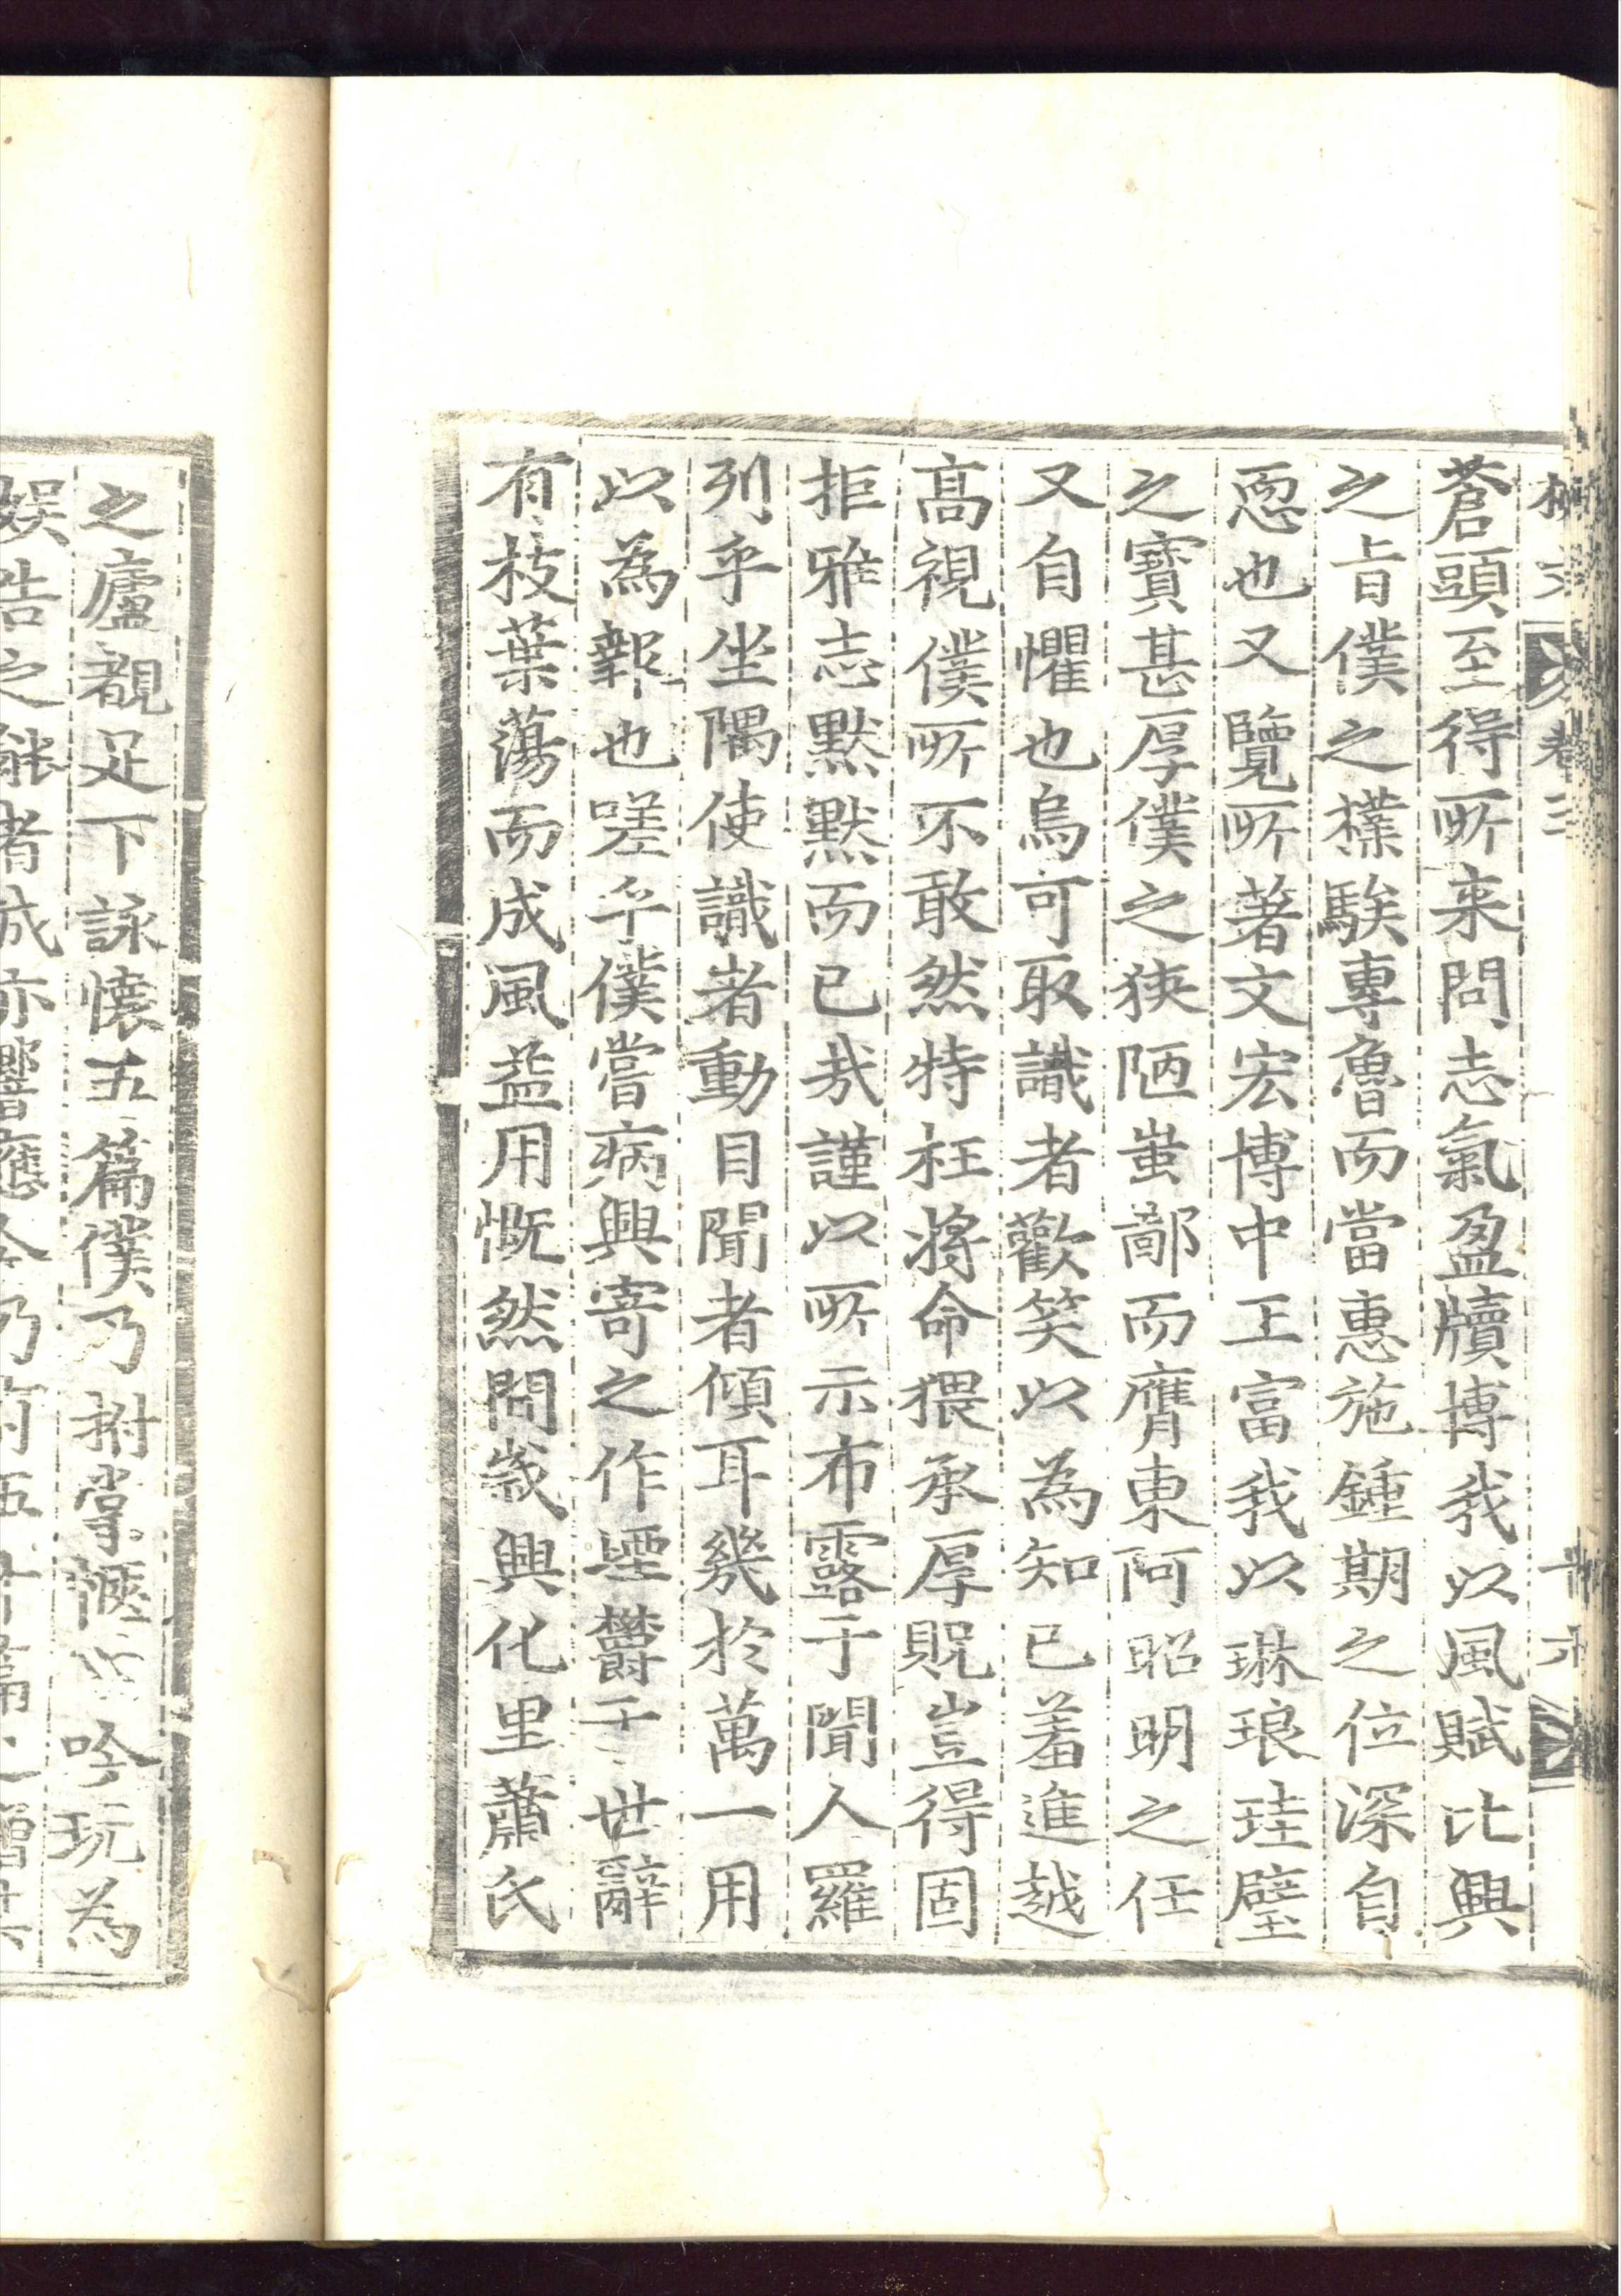 蒼頭至得所来問志氣盈牘博我以風賦比興
之旨僕之樸騃專魯而當惠施鍾期之位深自
恧也又覽所著文宏博中正富我以琳琅珪璧
之寶甚厚僕之狹陋蚩鄙而膺東阿昭明之任
又自懼也烏可取識者歡笑以為知已羞進越
高視僕所不敢然特枉將命猥承厚貺豈得固
拒雅志默默而已㢤謹以所示布露于聞人羅
列乎坐隅使識者動目聞者傾耳幾於萬一用
以為報也嗟乎僕嘗病興寄之作堙欝于世辭
有枝葉蕩而成風益用慨然間歲興化里蕭氏
之廬覩足下詠懷五篇僕乃拊掌愜心吟玩為
娱告之能者成亦響應今乃有